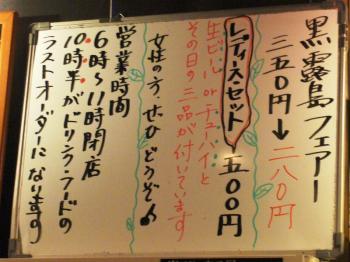 黒霧島フェアー
三五〇円→二八〇円
レディースセット 五〇〇円
生ビール or チューハイと
その日の三品が付いています
女性の方、ぜひどうぞ♪
営業時間
6時〜11時閉店
10時半がドリンク・フードの
ラストオーダーになります